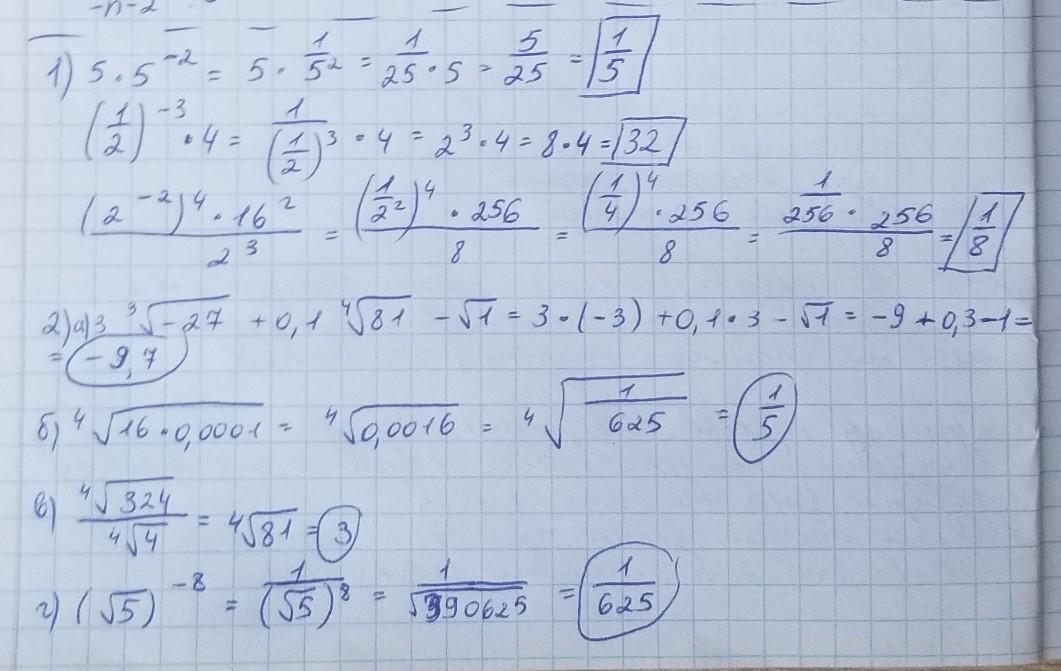 -n-2
1) 5 · 5⁻² = 5 · 1/5² = 1/25 · 5 = 5/25 = 1/5
(1/2)⁻³ · 4 = 1/(1/2)³ · 4 = 2³ · 4 = 8 · 4 = 32
((2⁻²)⁴ · 16²)/2³ = ((1/2²)⁴ · 256)/8 = ((1/4)⁴ · 256)/8 = (1/256 · 256)/8 = 1/8
2) а) 3 ³√-27 + 0,1 ⁴√81 - √1 = 3 · (-3) + 0,1 · 3 - √1 = -9 + 0,3 - 1 =
= -9,7
б) ⁴√16 · 0,0001 = ⁴√0,0016 = ⁴√1/625 = 1/5
в) ⁴√324/⁴√4 = ⁴√81 = 3
г) (√5)⁻⁸ = 1/(√5)⁸ = 1/√390625 = 1/625